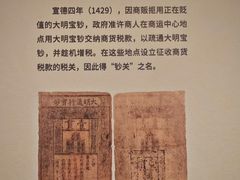 宣德四年（1429），因商贩拒用正在贬
值的大明宝钞，政府准许商人在商运中心地
点用大明宝钞交纳商货税款，以疏通大明宝
钞，并趁机增税。在这些地点设立征收商货
税款的税关，因此得“钞关”之名。